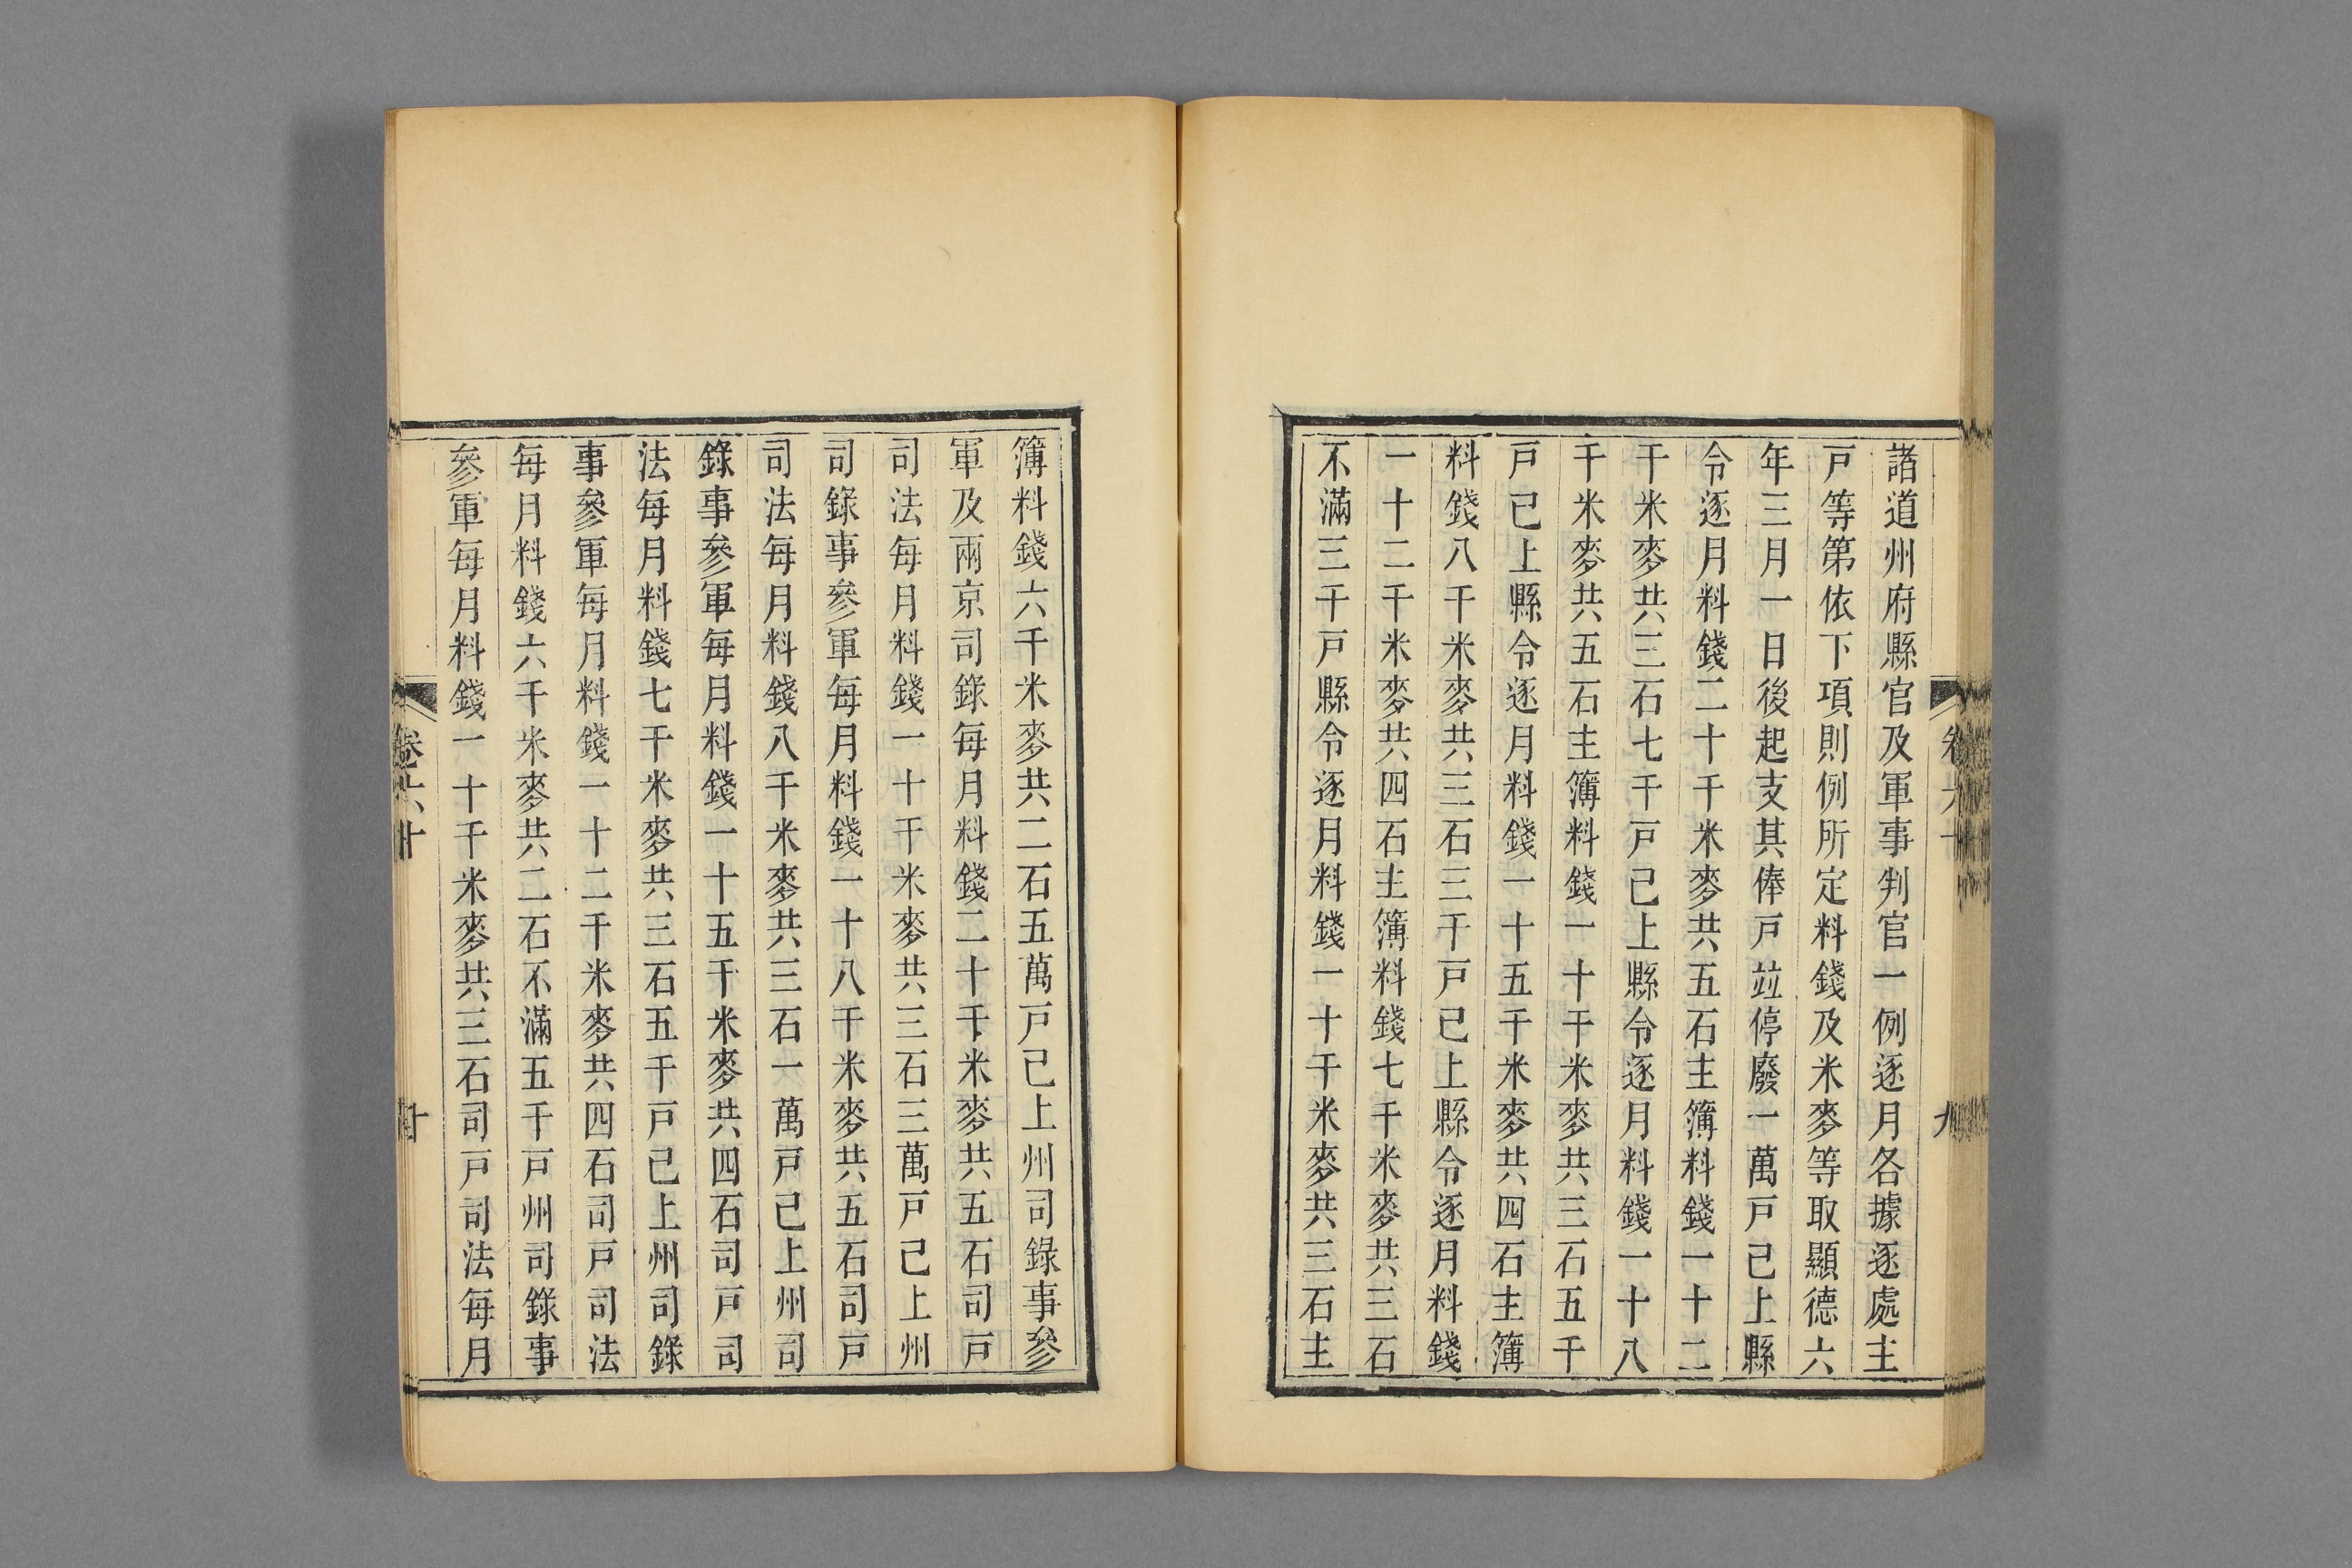 諸道州府縣官及軍事判官一例逐月各據逐處主
戸等第依下項則例所定料錢及米麥等取顯德六
年三月一日後起支其俸戸竝停廢一萬戸已上縣
令逐月料錢二十千米麥共五石主簿料錢一十二
千米麥共三石七千戸已上縣令逐月料錢一十八
千米麥共五石主簿料錢一十千米麥共三石五千
戸已上縣令逐月料錢一十五千米麥共四石主簿
料錢八千米麥共三石三千戸已上縣令逐月料錢
一十二千米麥共四石主簿料錢七千米麥共三石
不滿三千戸縣令逐月料錢一十千米麥共三石主
九
簿料錢六千米麥共二石五萬戸已上州司錄事參
軍及兩京司錄每月料錢二十千米麥共五石司戸
司法每月料錢一十千米麥共三石三萬戸已上州
司錄事參軍每月料錢一十八千米麥共五石司戸
司法每月料錢八千米麥共三石一萬戸已上州司
錄事參軍每月料錢一十五千米麥共四石司戸司
法每月料錢七千米麥共三石五千戸已上州司錄
事參軍每月料錢一十二千米麥共四石司戸司法
每月料錢六千米麥共二石不滿五千戸州司錄事
參軍每月料錢一十千米麥共三石司戸司法每月